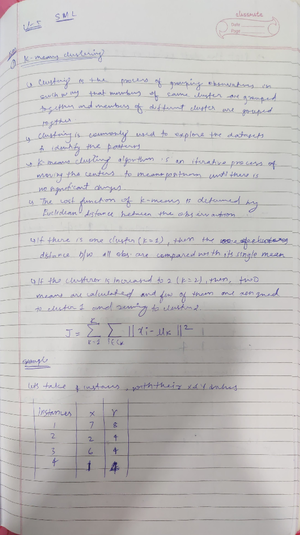 classmate
Date
Page
U-5 S.M.L
K-means clustering
Clustering is the process of grouping observations in
such a way that members of same cluster are grouped
together and members of different cluster are grouped
together
Clustering is commonly used to explore the datasets
& identify the patterns
K-means clustering algorithm is an iterative process of
moving the centers to mean position until there is
no significant change
The cost function of K-means is determined by
Euclidean distance between the observation
If there is one cluster (K=1), then the
distance b/w all obs are compared with its single mean
If the cluster is increased to 2 (K=2), then, two
means are calculated and few of them are assigned
to cluster 1 and to cluster 2.
J = Σ Σ || xi - μk ||²
Example
Lets take 4 instances, with their x & y values
Instances X Y
1 7 8
2 2 4
3 6 4
4 1 4